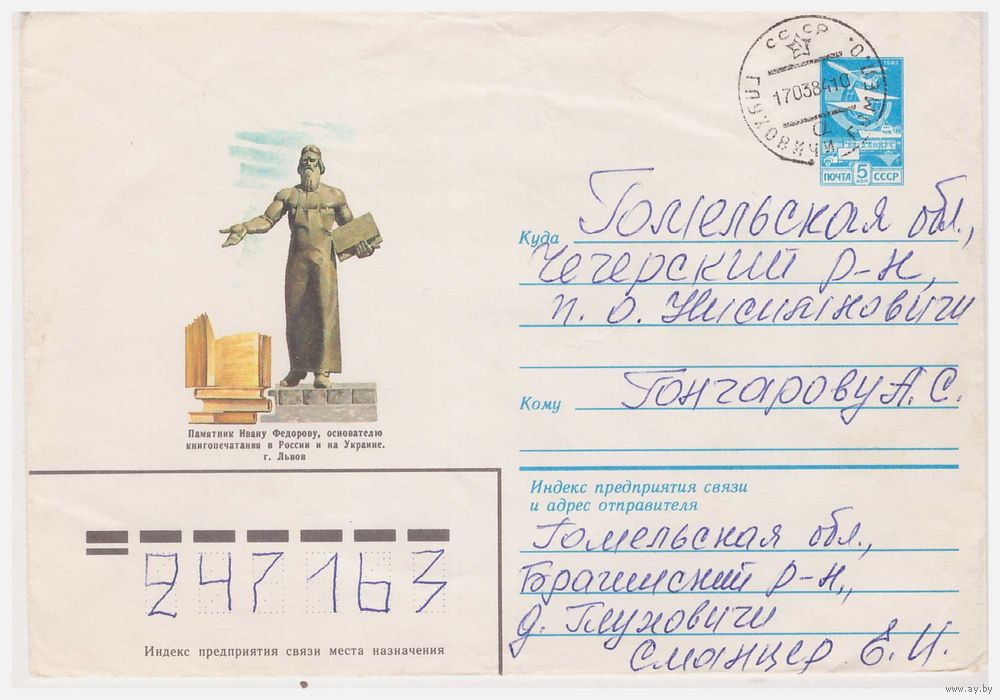 СССР
ГЛУХОВИЧИ ГОМЕЛ. О.
17038410
а
1982
ПОЧТА 5 коп СССР
Куда Гомельская обл.,
Чечерский р-н,
п. о. Нисимковичи
Кому Гончарову А. С.
Памятник Ивану Федорову, основателю
книгопечатания в России и на Украине.
г. Львов
Индекс предприятия связи
и адрес отправителя
Гомельская обл.,
Брагинский р-н,
д. Глуховичи
Сманцер Е. И.
247163
Индекс предприятия связи места назначения
www.ay.by